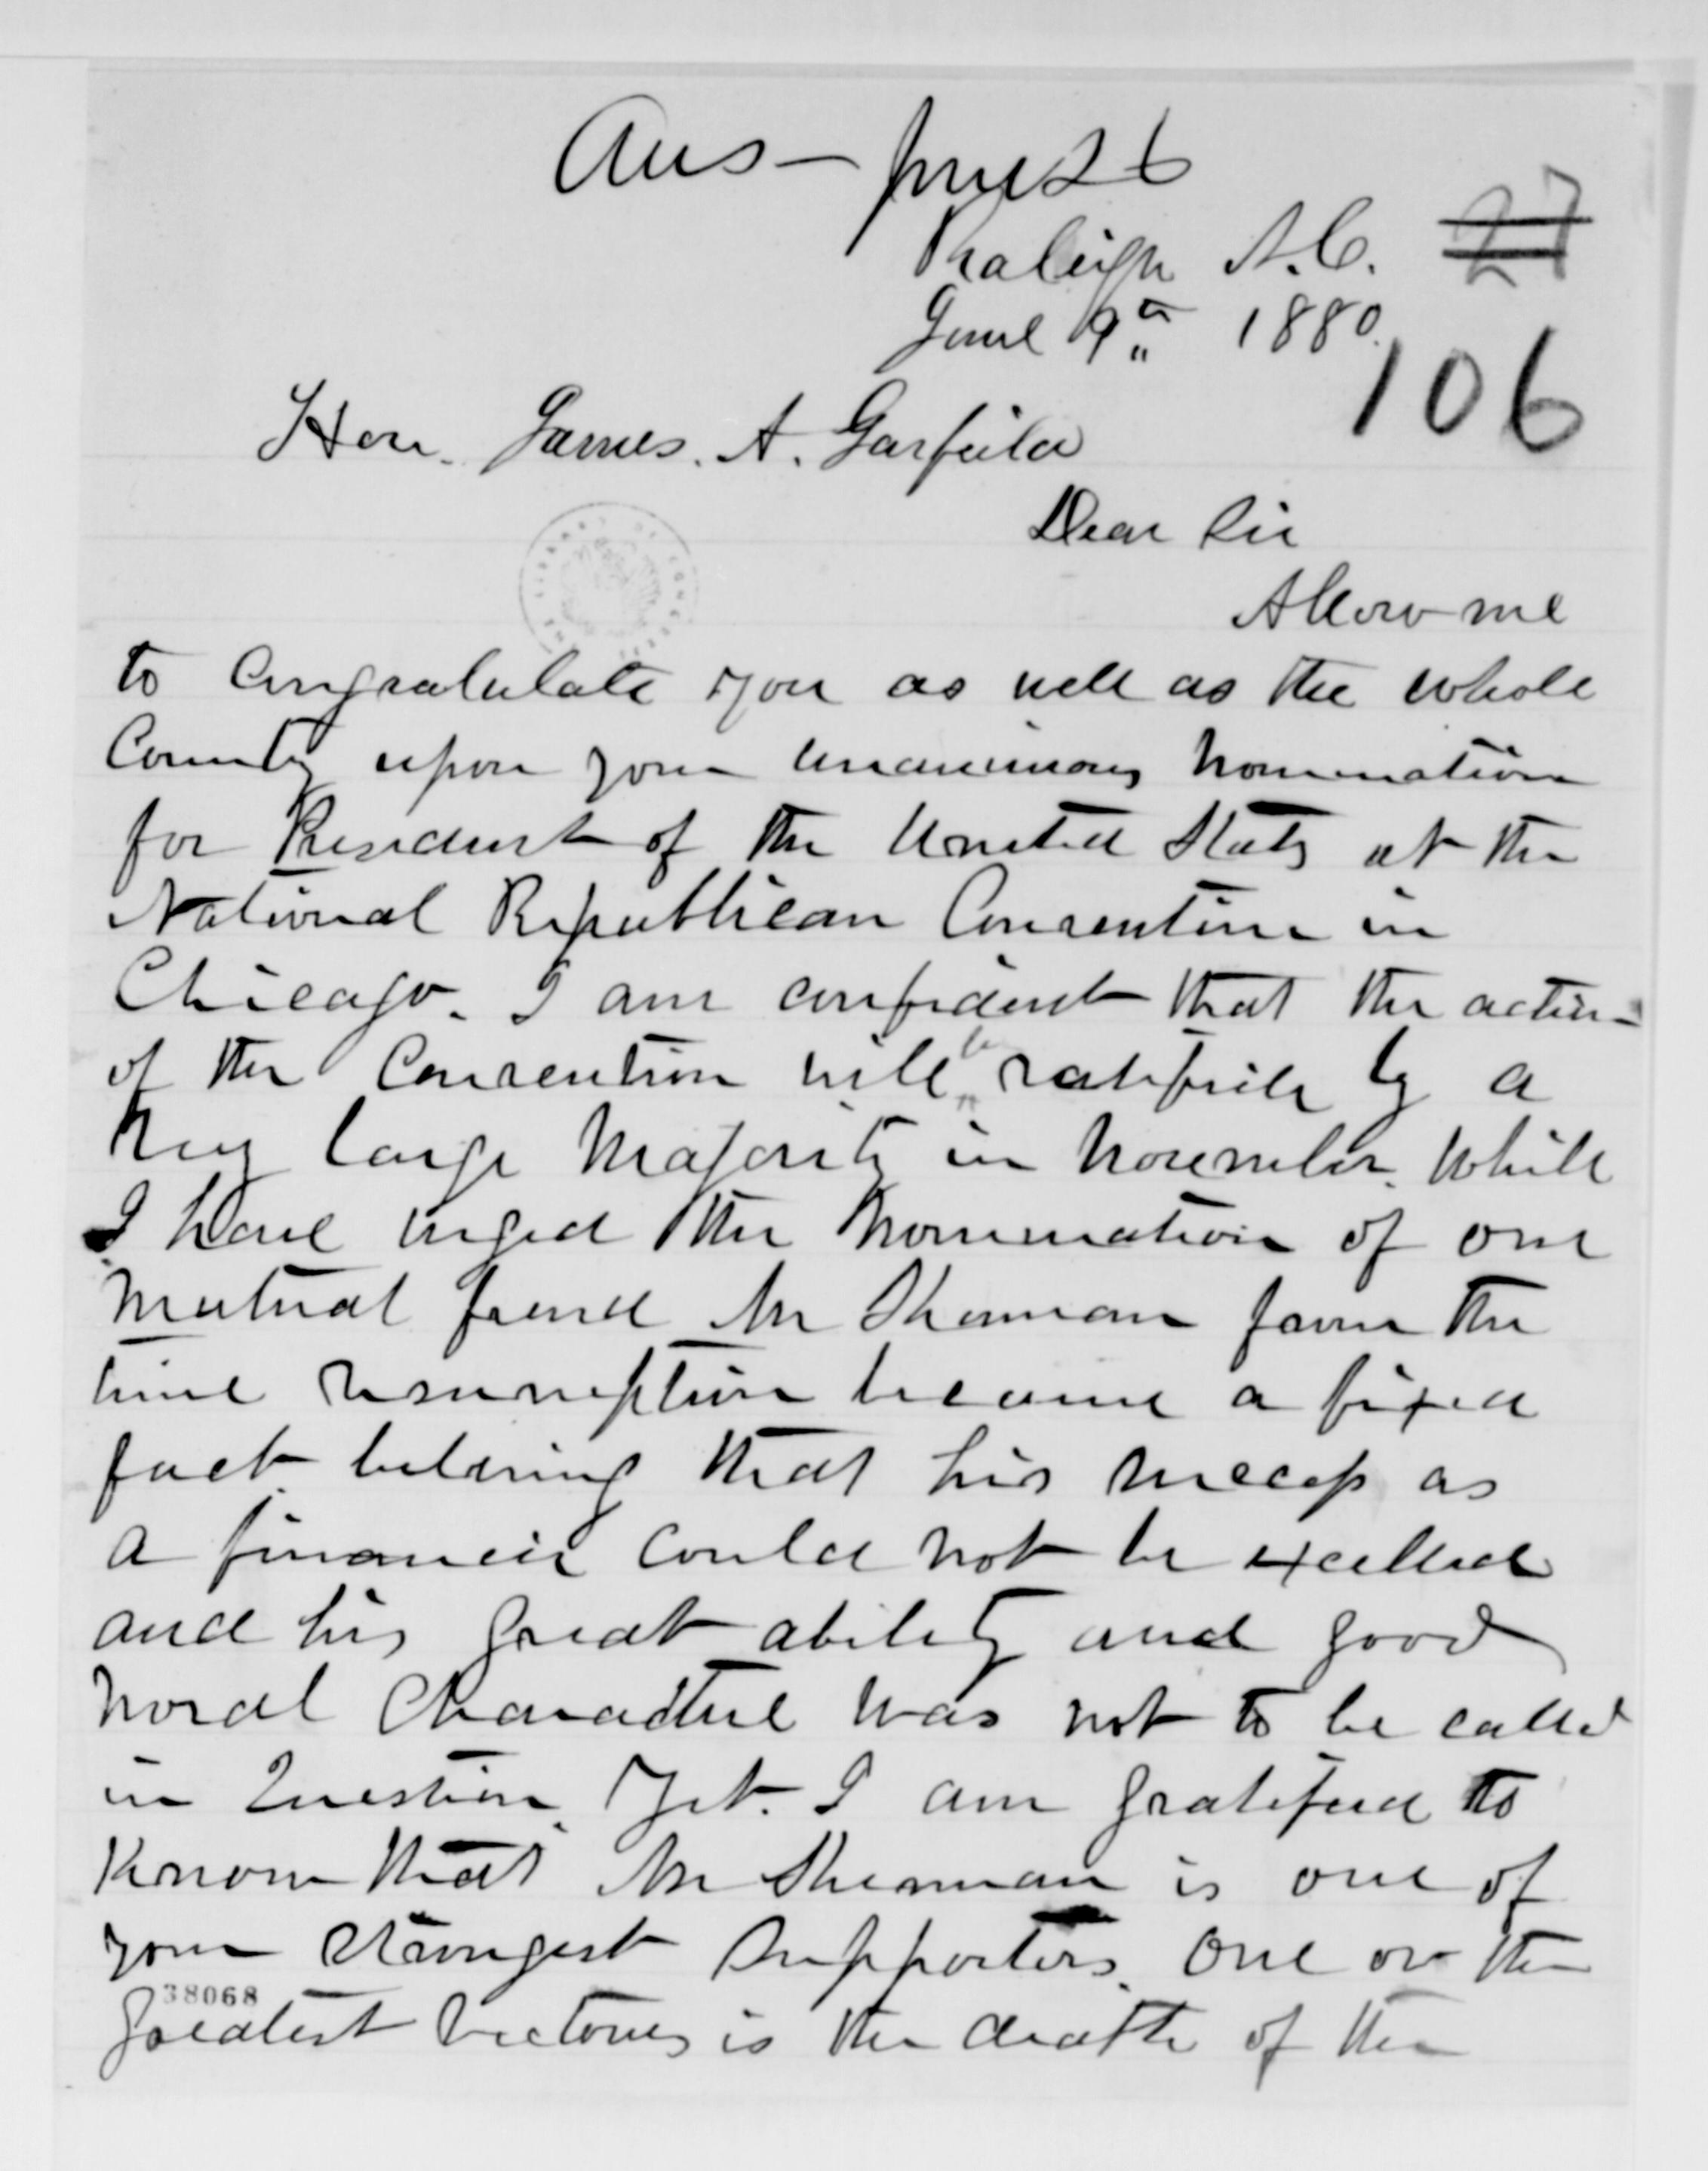 Ans — June 26
Raleigh N.C.
27
June 9th 1880.
106
Hon. James. A. Garfield
Dear Sir
Allow me
to Congratulate you as well as the whole
County upon your unanimous nomination
for President of the United States at the
National Republican Convention in
Chicago. I am confident that the action
of the Convention will be ratified by a
very large Majority in November. While
I have urged the nomination of our
mutual friend Mr Sherman from the
time resumption became a fixed
fact believing that his success as
a financier could not be excelled
and his great ability and good
moral Character was not to be called
in Question. Yet. I am gratified to
Know that Mr Sherman is one of
your strongest Supporters. One or the
38068
greatest Victories is the death of the